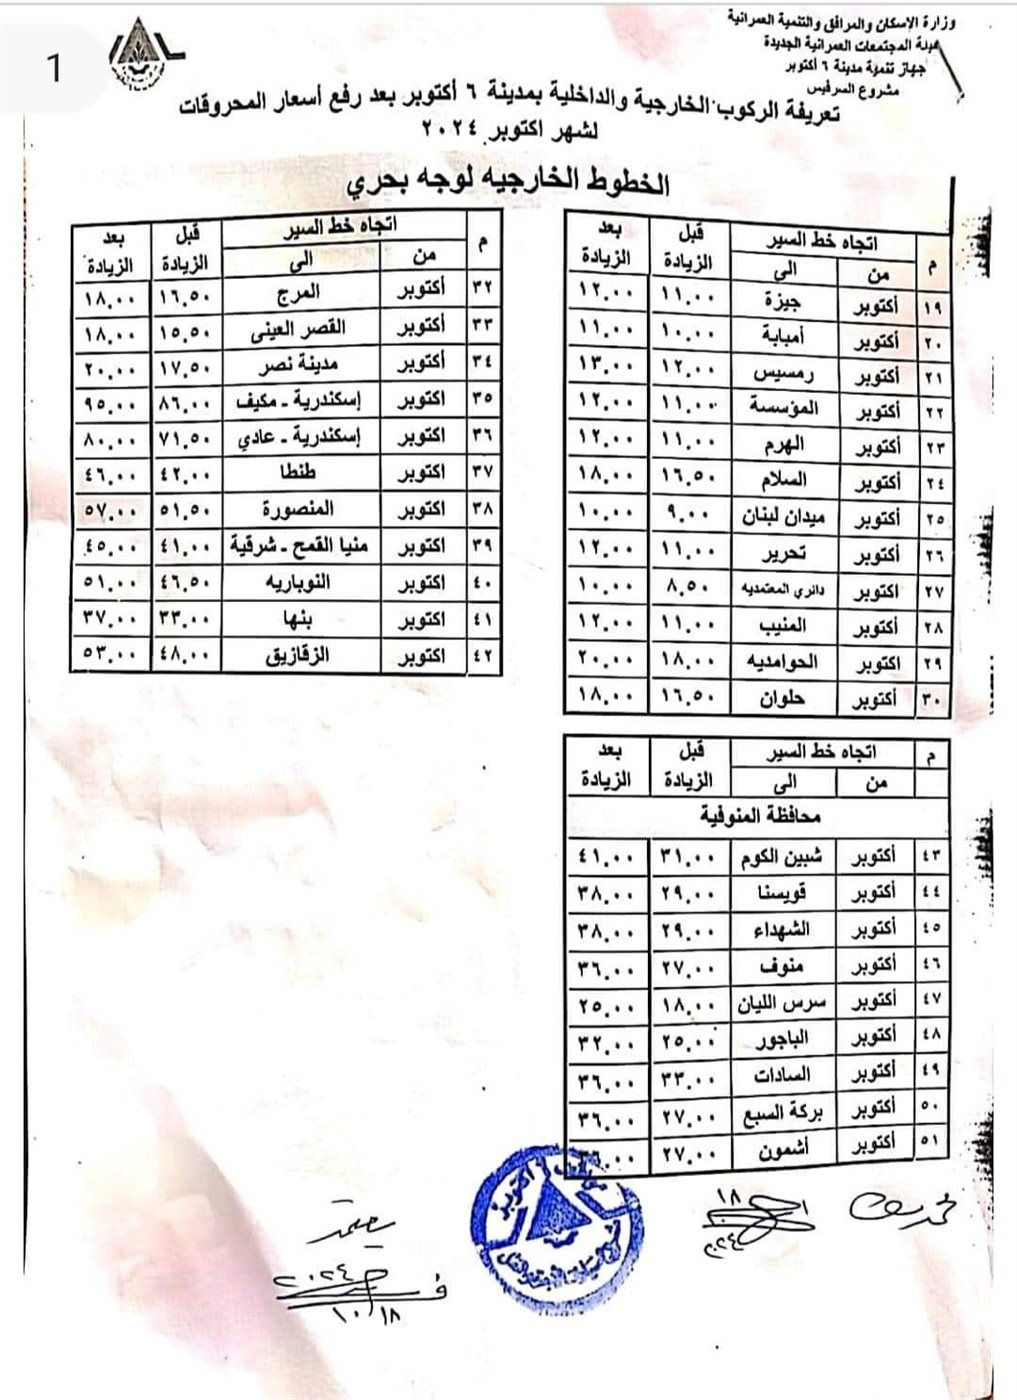 1
وزارة الإسكان والمرافق والتنمية العمرانية
هيئة المجتمعات العمرانية الجديدة
جهاز تنمية مدينة ٦ أكتوبر
مشروع السرفيس
تعريفة الركوب الخارجية والداخلية بمدينة ٦ أكتوبر بعد رفع أسعار المحروقات
لشهر اكتوبر ٢٠٢٤
الخطوط الخارجيه لوجه بحري
م اتجاه خط السير قبل الزيادة بعد الزيادة
من الى
١٩ أكتوبر جيزة ١١,٠٠ ١٢,٠٠
٢٠ أكتوبر أمبابة ١٠,٠٠ ١١,٠٠
٢١ أكتوبر رمسيس ١٢,٠٠ ١٣,٠٠
٢٢ أكتوبر المؤسسة ١١,٠٠ ١٢,٠٠
٢٣ أكتوبر الهرم ١١,٠٠ ١٢,٠٠
٢٤ أكتوبر السلام ١٦,٥٠ ١٨,٠٠
٢٥ أكتوبر ميدان لبنان ٩,٠٠ ١٠,٠٠
٢٦ أكتوبر تحرير ١١,٠٠ ١٢,٠٠
٢٧ اكتوبر دائري المعتمديه ٨,٥٠ ١٠,٠٠
٢٨ أكتوبر المنيب ١١,٠٠ ١٢,٠٠
٢٩ اكتوبر الحوامديه ١٨,٠٠ ٢٠,٠٠
٣٠ أكتوبر حلوان ١٦,٥٠ ١٨,٠٠
م اتجاه خط السير قبل الزيادة بعد الزيادة
من الى
٣٢ أكتوبر المرج ١٦,٥٠ ١٨,٠٠
٣٣ أكتوبر القصر العينى ١٥,٥٠ ١٨,٠٠
٣٤ أكتوبر مدينة نصر ١٧,٥٠ ٢٠,٠٠
٣٥ اكتوبر إسكندرية - مكيف ٨٦,٠٠ ٩٥,٠٠
٣٦ اكتوبر إسكندرية - عادي ٧١,٥٠ ٨٠,٠٠
٣٧ اكتوبر طنطا ٤٢,٠٠ ٤٦,٠٠
٣٨ اكتوبر المنصورة ٥١,٥٠ ٥٧,٠٠
٣٩ اكتوبر منيا القمح - شرقية ٤١,٠٠ ٤٥,٠٠
٤٠ اكتوبر النوباريه ٤٦,٥٠ ٥١,٠٠
٤١ اكتوبر بنها ٣٣,٠٠ ٣٧,٠٠
٤٢ اكتوبر الزقازيق ٤٨,٠٠ ٥٣,٠٠
م اتجاه خط السير قبل الزيادة بعد الزيادة
من الى
محافظة المنوفية
٤٣ أكتوبر شبين الكوم ٣١,٠٠ ٤١,٠٠
٤٤ أكتوبر قويسنا ٢٩,٠٠ ٣٨,٠٠
٤٥ أكتوبر الشهداء ٢٩,٠٠ ٣٨,٠٠
٤٦ أكتوبر منوف ٢٧,٠٠ ٣٦,٠٠
٤٧ أكتوبر سرس الليان ١٨,٠٠ ٢٥,٠٠
٤٨ أكتوبر الباجور ٢٥,٠٠ ٣٢,٠٠
٤٩ أكتوبر السادات ٣٣,٠٠ ٣٦,٠٠
٥٠ أكتوبر بركة السبع ٢٧,٠٠ ٣٦,٠٠
٥١ أكتوبر أشمون ٢٧,٠٠
يعتمد
٢٠٢٤
١٠/١٨
١٨
٢٠٢٤